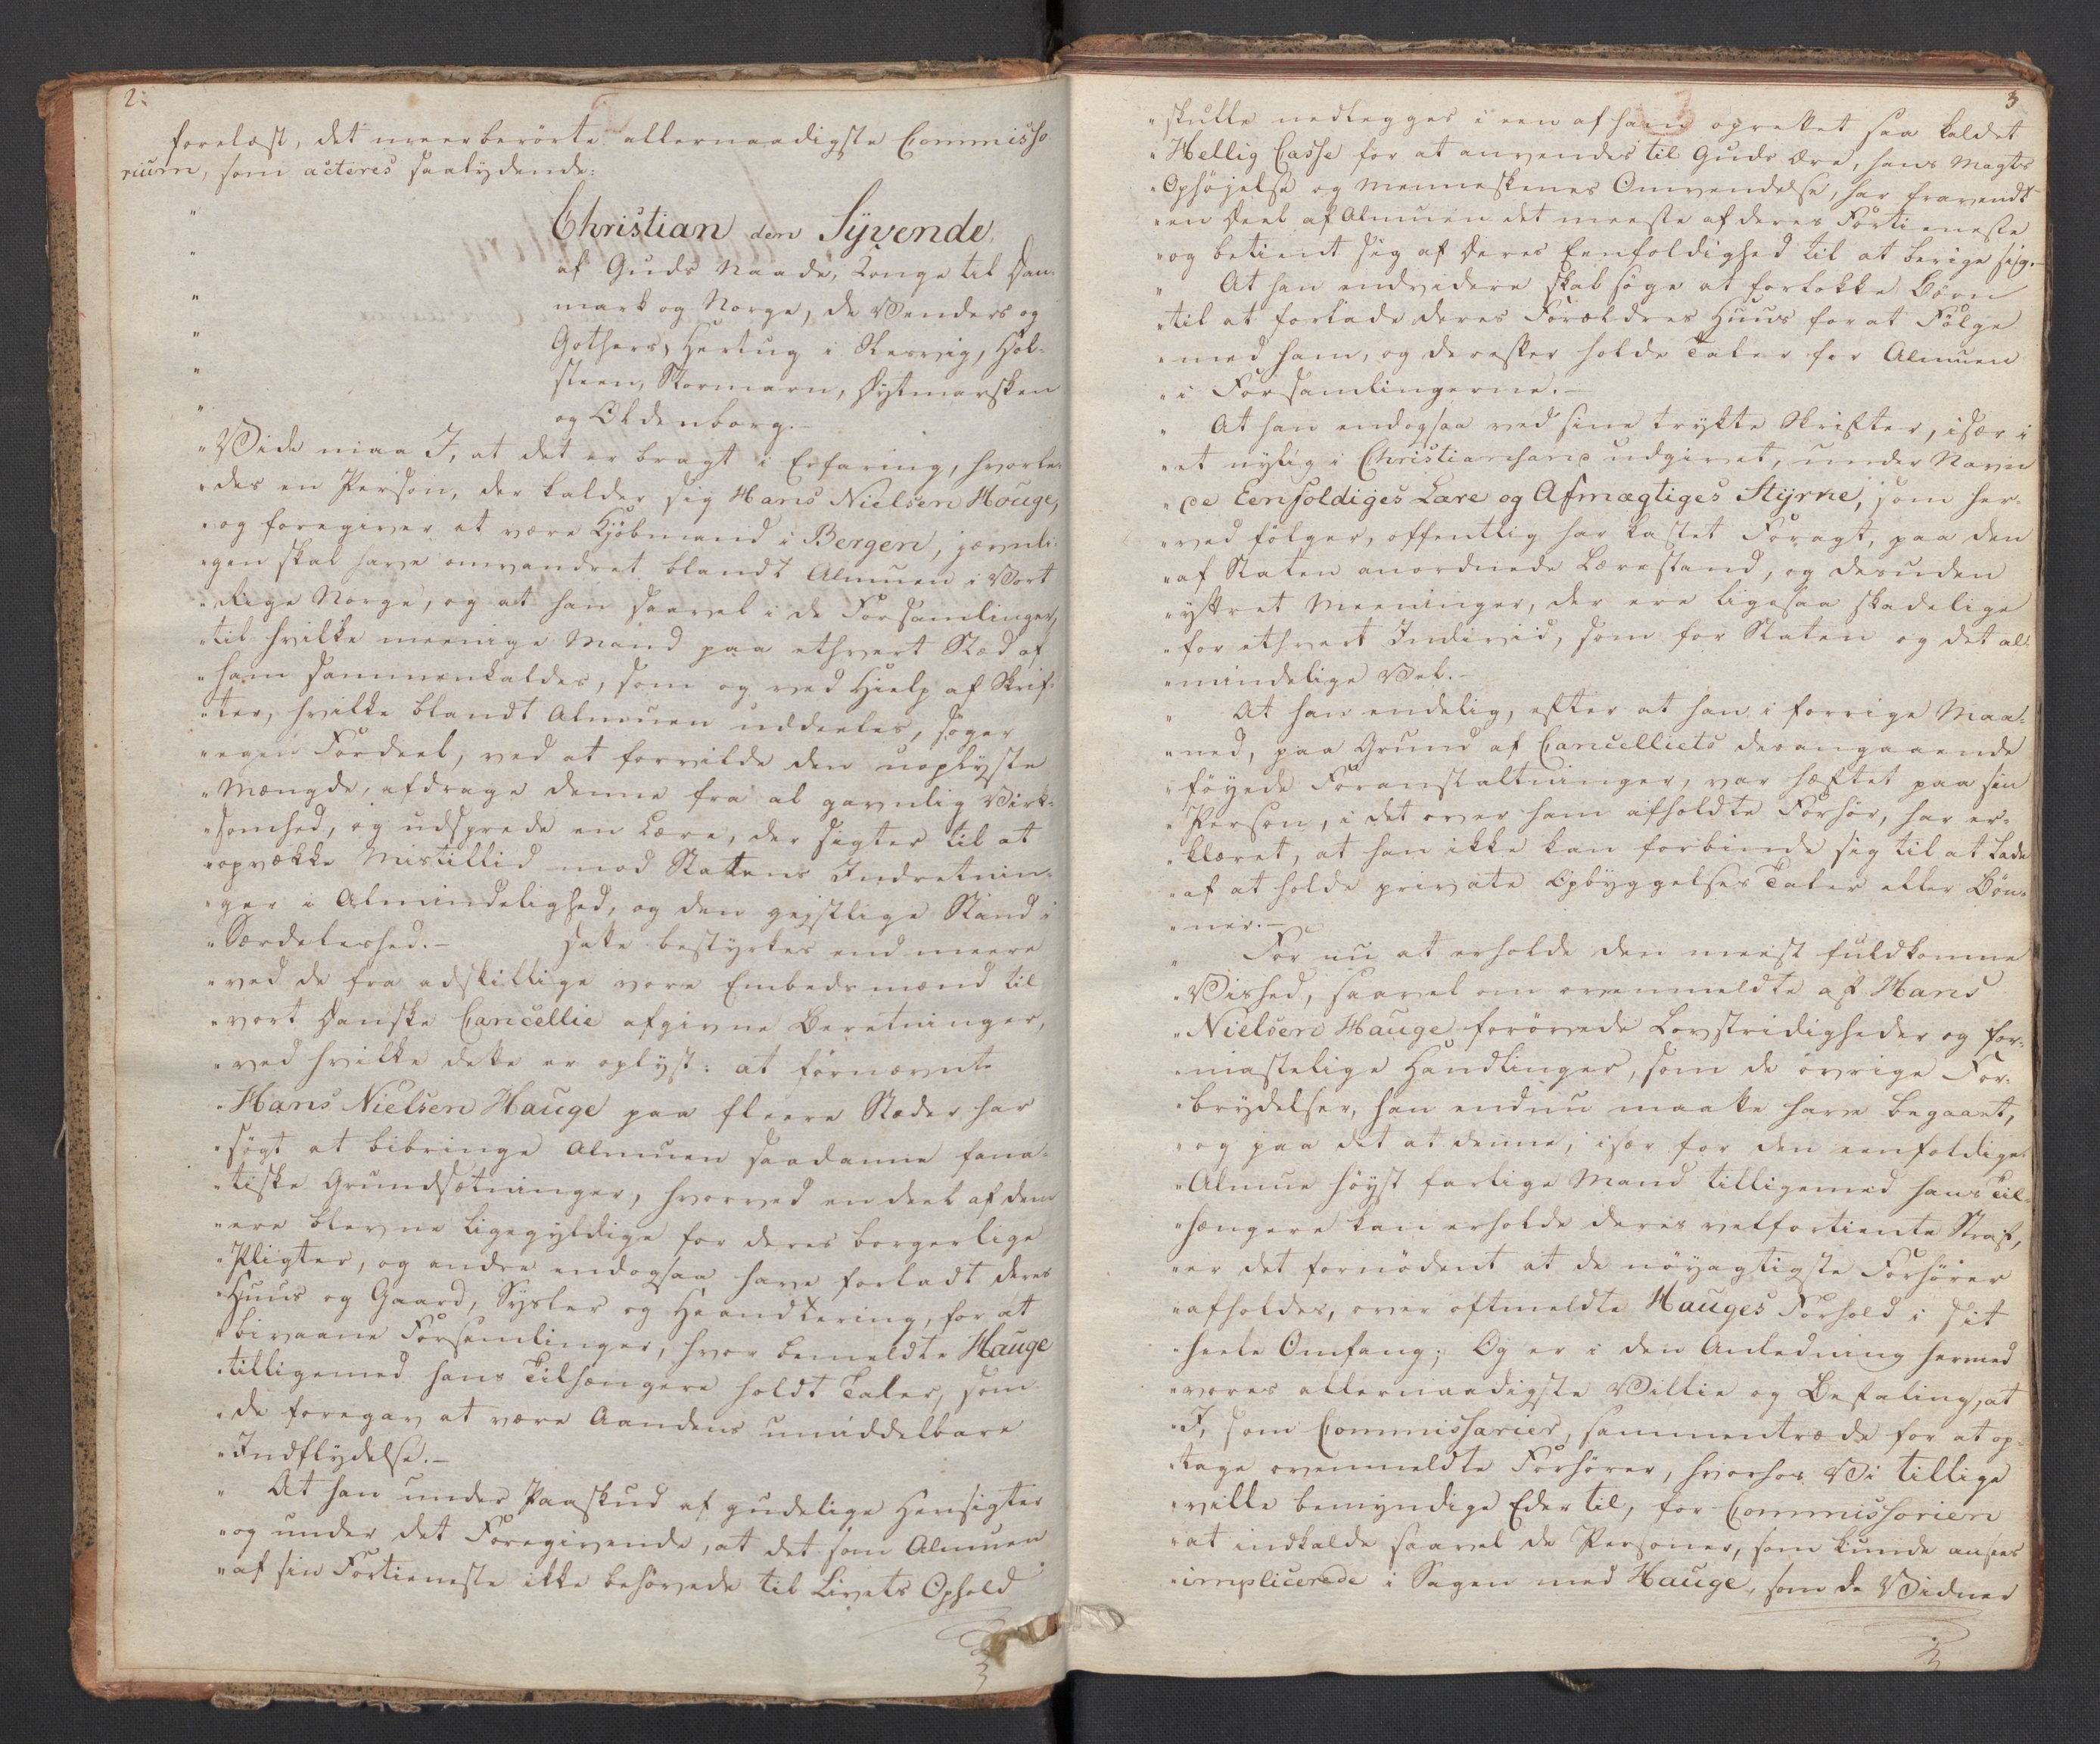 2.
forelæst, det meerberørte allernaadigste Commisso
rium, som acteres saalydende:
Christian den Syvende,
af Guds Naade, Konge til Dan-
mark og Norge, de Venders og
Gothers, Hertug i Slesvig, Hol-
steen, Stormarn, Dytmarsken
og Oldenborg.-
"Vide maa I, at det er bragt i Erfaring, hvorle-
"des en Person, der kalder sig Hans Nielsen Houge,
"og foregiver at være Kjøbmand i Bergen, jævnli-
"gen skal have omvandret blandt Almuen i Vort
"Rige Norge, og at han saavel i de Forsamlinger,
"til hvilke meenige Mand paa ethvert Stæd af
"ham sammenkaldes, som og ved Hielp af Skrif-
"ter, hvilke blandt Almuen uddeeles, søger
"egen Fordeel, ved at forvilde den uoplyste
"Mængde, afdrage denne fra al gavnlig Virk-
"somhed, og udsprede en Lære, der sigter til at
"opvække Mistillid mod Statens Indretnin-
"ger i Almindelighed, og den geistlige Stand i
"Særdeleshed.- Dette bestyrkes end meere
"ved de fra adskillige vore Embedsmænd til
"vort Danske Cancellie afgivne Beretninger,
"ved hvilke dette er oplyst: at fornævnte
"Hans Nielsen Hauge paa fleere Stæder har
"søgt at bibringe Almuen saadanne fana-
"tiske Grundsætninger, hvorved en deel af dem
"ere blevne ligegyldige for deres borgerlige
"Pligter, og andre endogsaa have forladt deres
"Huus og Gaard, Sysler og Haandtering, for at
"bivaane Forsamlinger, hvor bemeldte Hauge
"tilligemed hans Tilhængere holdt Taler, som
"de foregav at være Aandens umiddelbare
"Indflydelse.-
" At han under Paaskud af gudelige Hensigter
"og under det Foregivende, at det som Almuen
"af sin Fortieneste ikke behøvede til Livets Ophold
3
"skulle nedlegges i een af ham oprettet saa kaldet
"Hellig Casse for at anvendes til Guds Ære, hans Magts
"Ophøjelse og Menneskenes Omvendelse, har fravendt
"en Deel af Almuen det meeste af deres Fortieneste
"og betient sig af deres Eenfoldighed til at berige sig.-
" At han endvidere skal søge at forlokke Børn
"til at forlade deres Forældres Huus for at Følge
"med ham, og derefter holde Taler for Almuen
"i Forsamlingerne.-
" At han endogsaa ved sine trykte Skrifter, især i
"et nylig i Christiansand udgivet, under Navn
"De Eenfoldiges Lære og Afmægtiges Styrke, som her-
"ved følger, offentlig har kastet Foragt, paa den
"af Staten anordnede Lærestand, og desuden
"yttret Meeninger, der ere ligesaa skadelige
"for ethvert Individ, som for Staten og det al-
"mindelige Vel.-
" At han endelig, efter at han i forrige Maa-
"ned, paa Grund af Cancelliets desangaaende
"føyede Foranstaltninger, var hæftet paa sin
"Person, i det over ham afholdte Forhør, har er-
"klæret, at han ikke kan forbinde sig til at lade
"af at holde private Opbyggelses Taler eller Bøn-
"ner.-
" For nu at erholde den meest fuldkomne
"Vished, saavel om ovenmeldte af Hans
"Nielsen Hauge forøvede Lovstridigheder og for-
"mastelige Handlinger, som de øvrige For-
"brydelser, han endnu maatte have begaaet,
"og paa det at denne, især for den eenfoldige
"Almue høyst farlige Mand tilligemed hans Til-
"hængere kan erholde deres velfortiente Straf,
"er det fornødent at de nøyagtigste Forhører
"afholdes, over oftmeldte Hauges Forhold i sit
"heele Omfang; Og er i den Anledning hermed
"vores allernaadigste Villie og Befaling, at
"I, som Commissarier, sammentræde for at op-
"tage ovenmeldte Forhører, hvorhos Vi tillige
"ville bemyndige Eder til, for Commissorien
"at indkalde saavel de Personer, som kunde ansees
"implicerede i Sagen med Hauge, som de Vidner